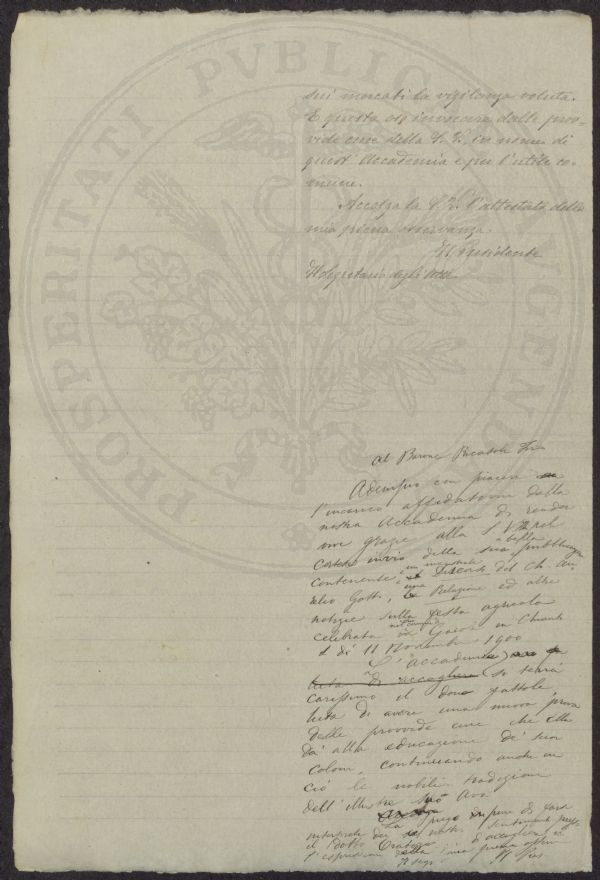 PROSPERITATI PVBLICAE AVGENDAE
sui mercati la vigilanza voluta.
E questo osa invocare dalle prov-
vide cure della S. V., in nome di
quest'Accademia e per l'utile co-
mune.
Accolga la S. V. l'attestato della
mia piena osservanza.
Il Presidente
Il Segretario degli Atti
Al Barone Ricasoli
Adempio con piacere
l'incarico affidatomi dalla
nostra Accademia di render
grazie alla S. V. pel
cortese invio della sua bella pubblicazione
contenente il Discorso del Ch. Au
relio Gotti, la Relazione ed altre
notizie sulla festa agricola
celebrata in Chianti
il dì 11 Novembre 1900
L'Accademia
lieta di accogliere si terrà
carissimo il dono fattole,
lieta di avere una nuova prova
delle provvide cure che Ella
dà alla educazione de' suoi
coloni, continuando anche in
ciò le nobili tradizioni
dell'illustre suo Avo
La prego di farsi
interprete dei nostri
l'espressione della mia
Il Segr. Il Pres.